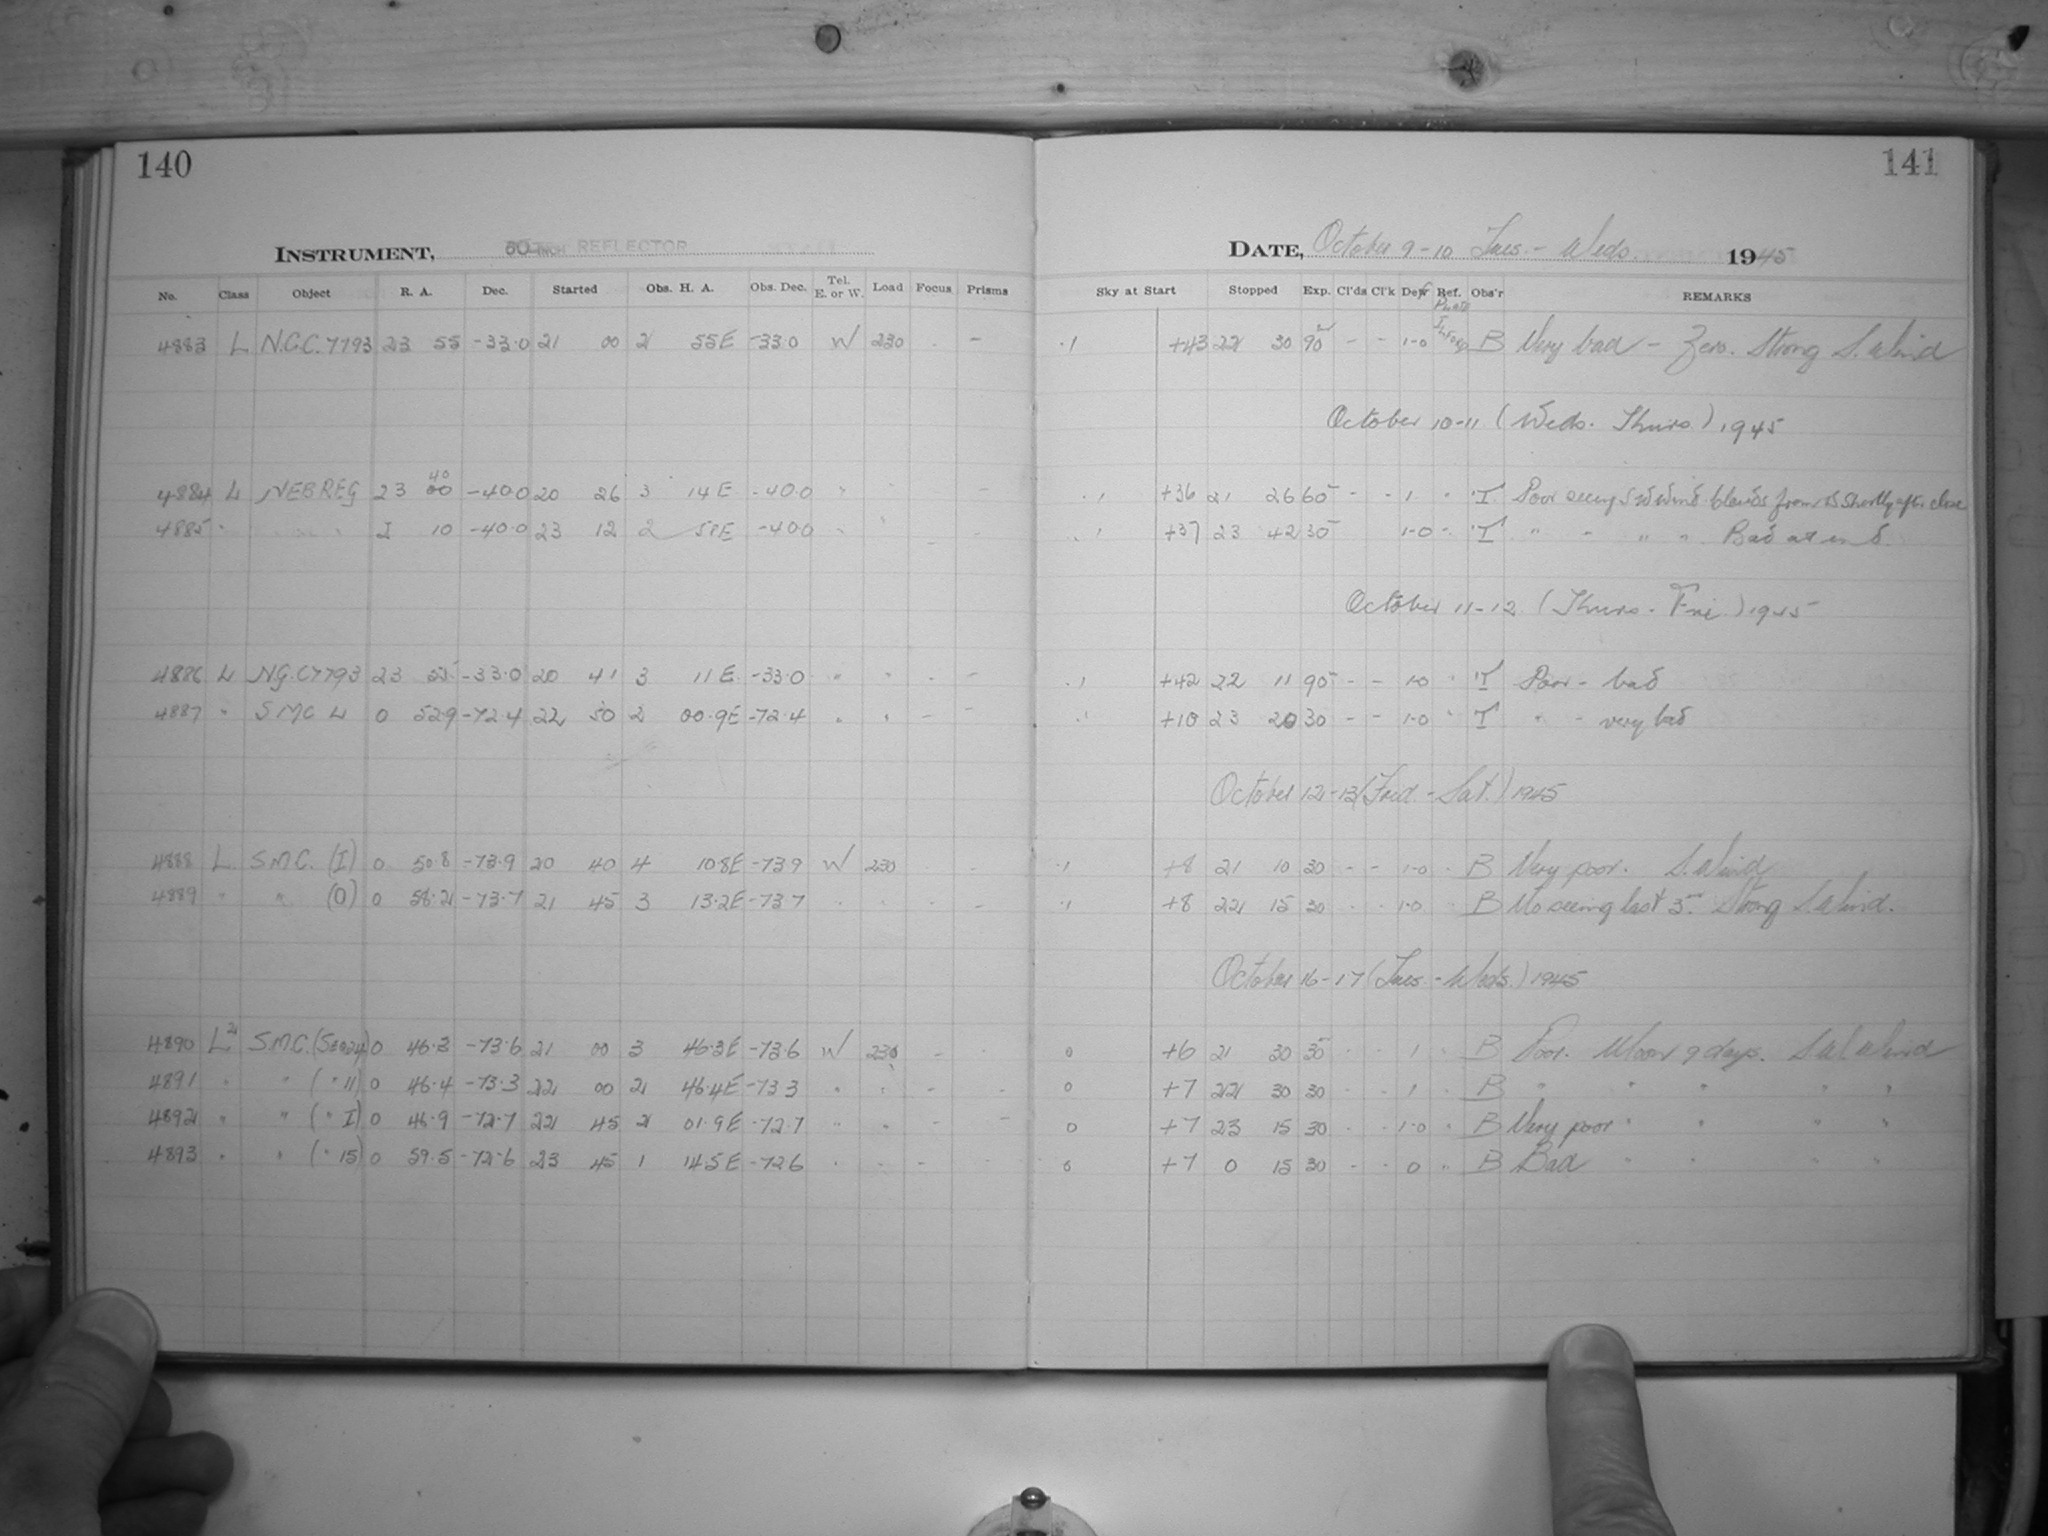 140
141
INSTRUMENT, 60 INCH REFLECTOR
DATE, October 9-10 Tues. - Weds. 1945
No. Class Object R. A. Dec. Started Obs. H. A. Obs. Dec. Tel. E. or W. Load Focus Prisms Sky at Start Stopped Exp. Cl'ds Cl'k Dew Ref. Obs'r REMARKS
4883 L N.G.C. 7793 23 55 -33.0 21 00 2 55E -33.0 W 230 - - .1 +43 22 30 90 - - 1-0 B Very bad - Zero. Strong S. Wind
October 10-11 (Weds. Thurs.) 1945
4884 L NEB REG 23 40 -40.0 20 26 3 14 E -40.0 " " - .1 +36 21 26 60 - - 1 " T Poor seeing SW wind clouds from W shortly after close
4885 " " " 1 10 -40.0 23 12 2 E -40.0 " " - - .1 +37 23 42 30 1-0 - T " " " " Bad at end.
October 11-12 (Thurs. - Fri) 1945
4886 L NGC 7793 23 55 -33.0 20 41 3 11 E -33.0 " " - - .1 +42 22 11 90 - - 1-0 " T Poor - bad
4887 " SMC L 0 52.9 -72.4 22 50 2 00.9E -72.4 " " - - .1 +10 23 20 30 - - 1-0 " T " - very bad
October 12-13 (Frid. - Sat.) 1945
4888 L S.M.C. (I) 0 50.8 -73.9 20 40 4 10.8E -73.9 W 230 - .1 +8 21 10 30 - - 1-0 B Very poor. S. Wind
4889 " " (O) 0 58.2 -73.7 21 45 3 13.2E -73.7 " " - - .1 +8 22 15 30 - - 1-0 B No seeing last 5m. Strong S. Wind.
October 16-17 (Tues. - Weds.) 1945
4890 L2 S.M.C. 0 46.3 -73.6 21 00 3 46.3E -73.6 W 230 - - 0 +6 21 30 30 - - 1 " B Poor. Moon 9 days. S.W. Wind
4891 " " (" 11) 0 46.4 -73.3 22 00 2 46.4E -73.3 " " - - 0 +7 22 30 30 - - 1 " B " " " " "
4892 " " (" I) 0 46.9 -72.7 22 45 2 01.9E -72.7 " " - - 0 +7 23 15 30 - - 1-0 " B Very poor " " " "
4893 " " (" 15) 0 59.5 -72.6 23 45 1 14.5E -72.6 " " - - 0 +7 0 15 30 - - 0 " B Bad " " " "